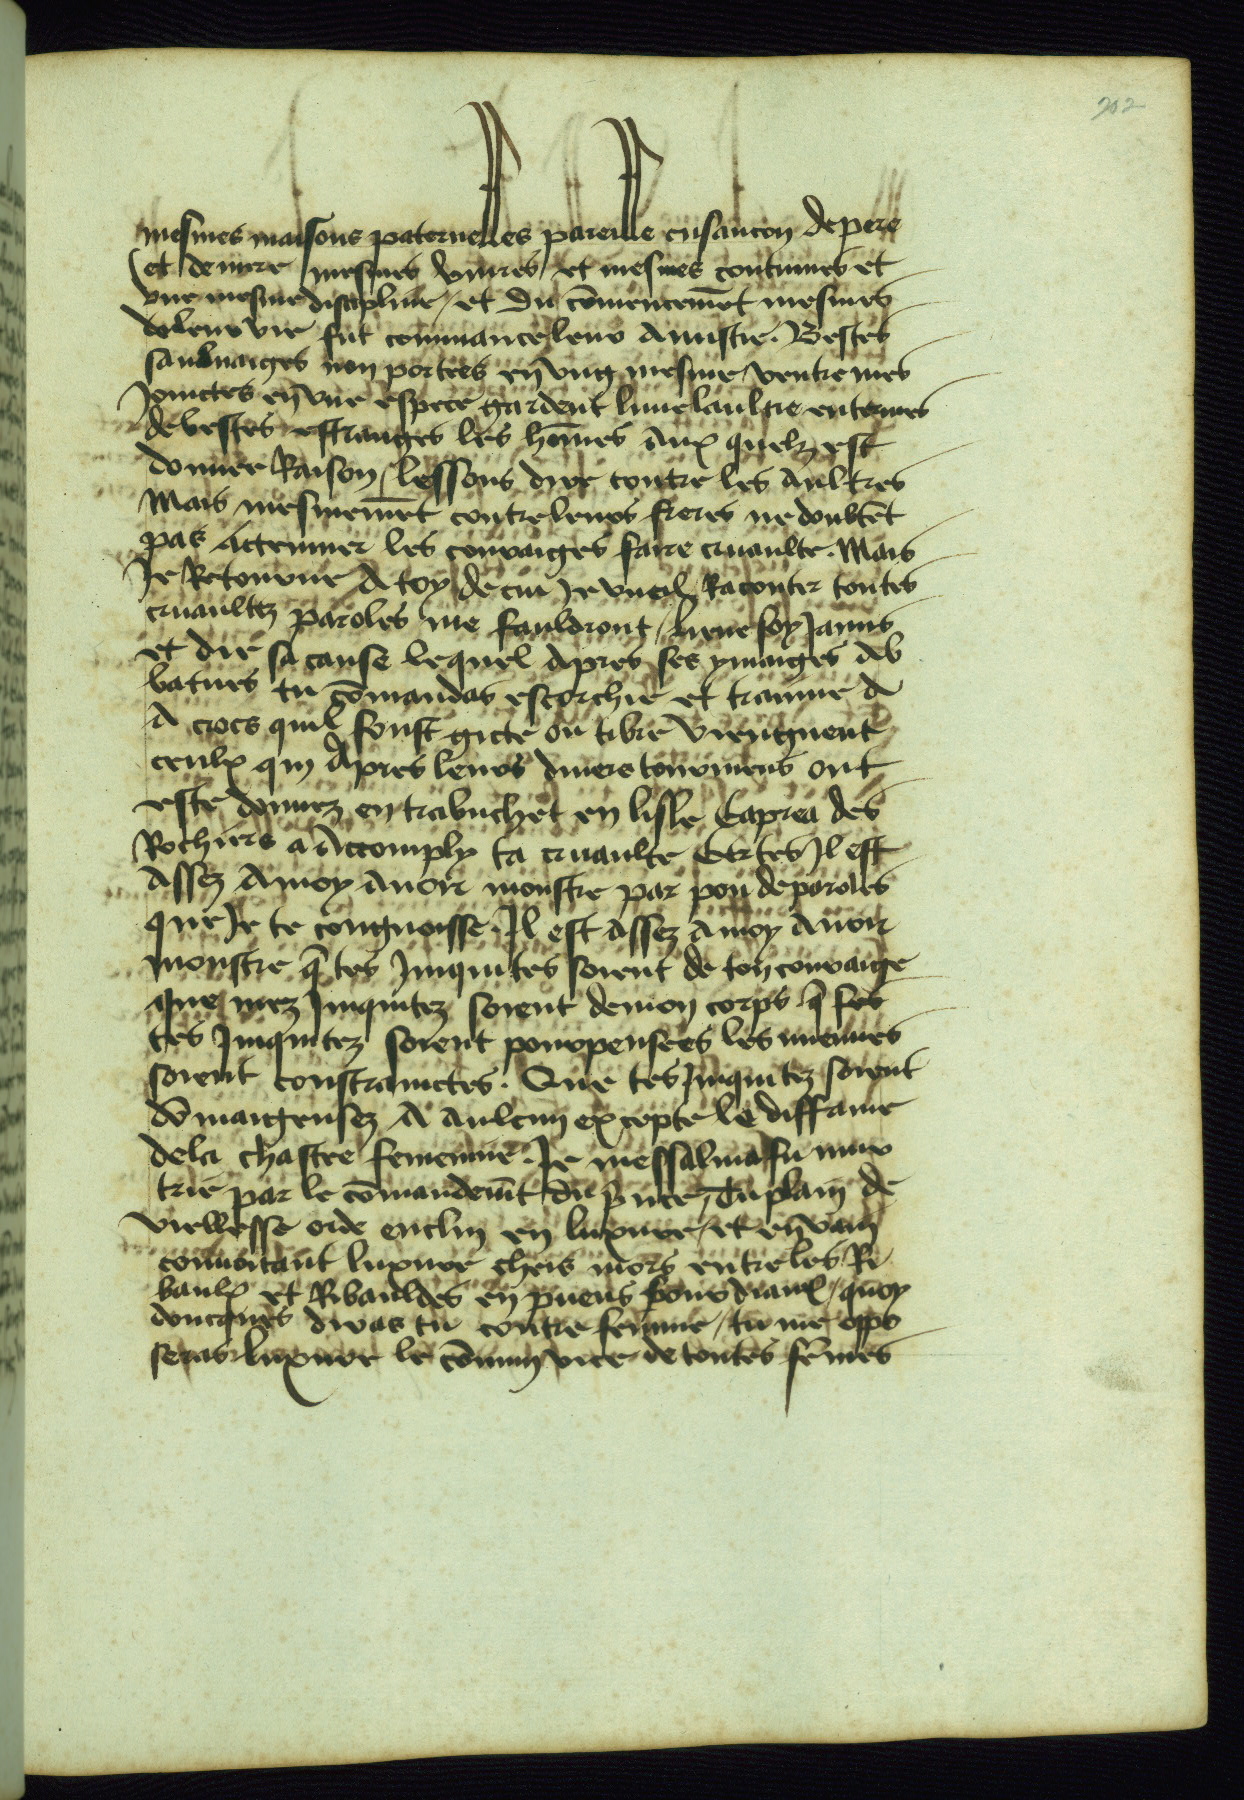 202
mesmes maisons paternelles pareille cusancon de pere
et de mere mesmes vivres et mesmes coutumes et
une mesme discipline / et du cōmencemēt mesmes
de leur vie fut commance leur amistie. Bestes
sauvaiges non portees en ung mesme ventre mes
Joinctes en une espece gardent leur leaultie enternes
de bestes estranges les hōmes aux quelz est
donnee Raison / lessons dire contre les aultres
Mais mesmemēt contre leurs freres ne doubtēt
pas actenner les couraiges faire cruaulte. Mais
Je Retourne a toy de cui Je vueil Raconter toutes
cruaultez paroles me fauldront / viene soy Janus
et die sa cause lequel apres ses ymaiges ab
batues tu cōmandas escorchie et trainne a
a crocs quil soust gicte ou tibre viengnent
ceulx qui apres leurs divers tourmens ont
este donnez en trabuchet en lisle Caprea des
Rochiers a accomply ta cruaulte Certes Il est
assez a moy avoir monstre par pou de paroles
que Je te congnoisse. Il est assez a moy avoir
monstre q̄ tes Iniquites soient de ton couraige
que mez Iniquitez soient de mon corps q̄ ses
tes Iniquitez soient pourpensees les miennes
soient constrainctes. Que tes Iniquitez soient
dōmaigeusez a aulcun excepte le diffame
de la chastee femenine. Je messalina fu mur
trie par le cōmandemēt du p̄nce / Tu plain de
viellesse orde enclin en luxure / et en vain
couvoitant luxure cheis mors entre les Ri
baulx et Ribauldes en puens pour diaulx / quoy
doncques diras tu contre femme / tu me oppo
seras luxure le cōmun vice de toutes fēmes